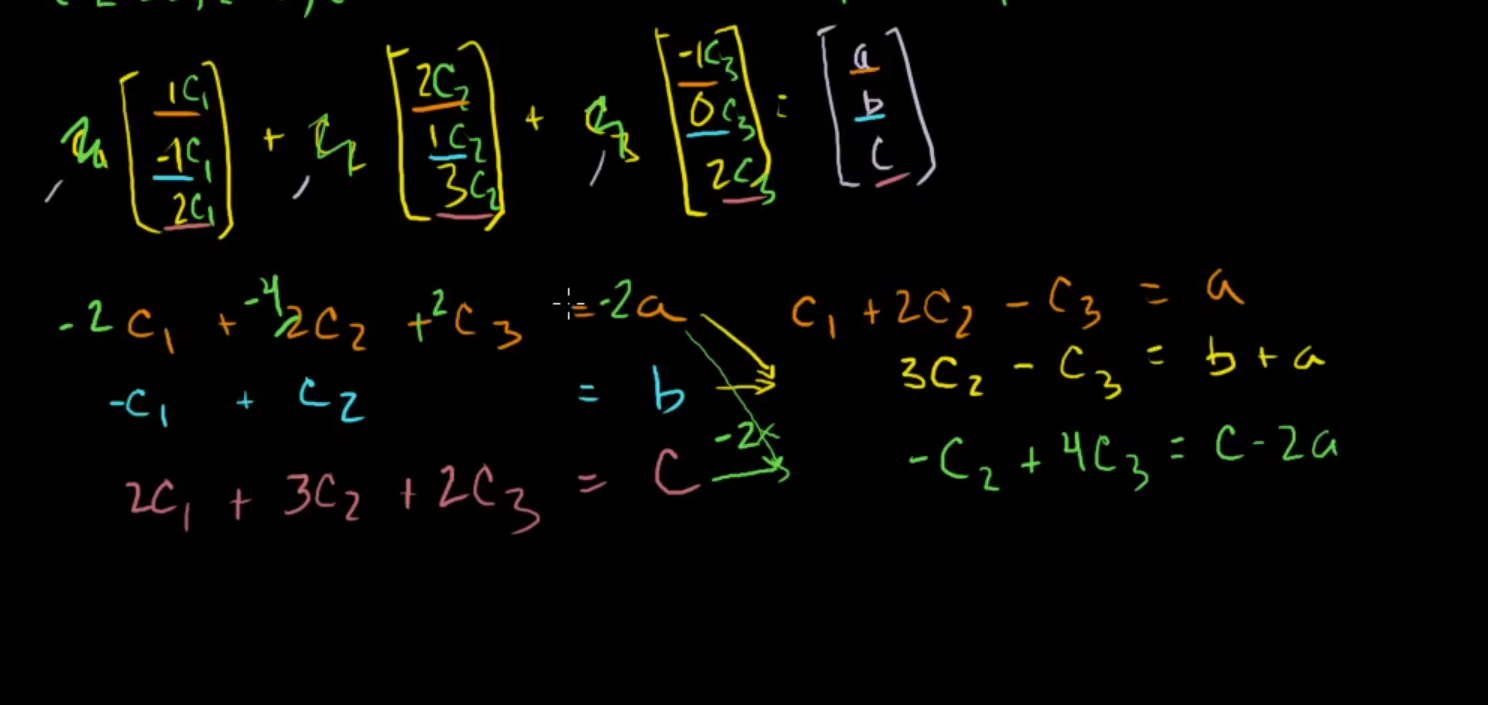 c₁ [1c₁ -1c₁ 2c₁] + c₂ [2c₂ 1c₂ 3c₂] + c₃ [-1c₃ 0c₃ 2c₃] = [a b c]
-2c₁ + -4 2c₂ + 2c₃ = -2a
c₁ + 2c₂ - c₃ = a
-c₁ + c₂ = b
3c₂ - c₃ = b + a
2c₁ + 3c₂ + 2c₃ = c
-2x
-c₂ + 4c₃ = c - 2a